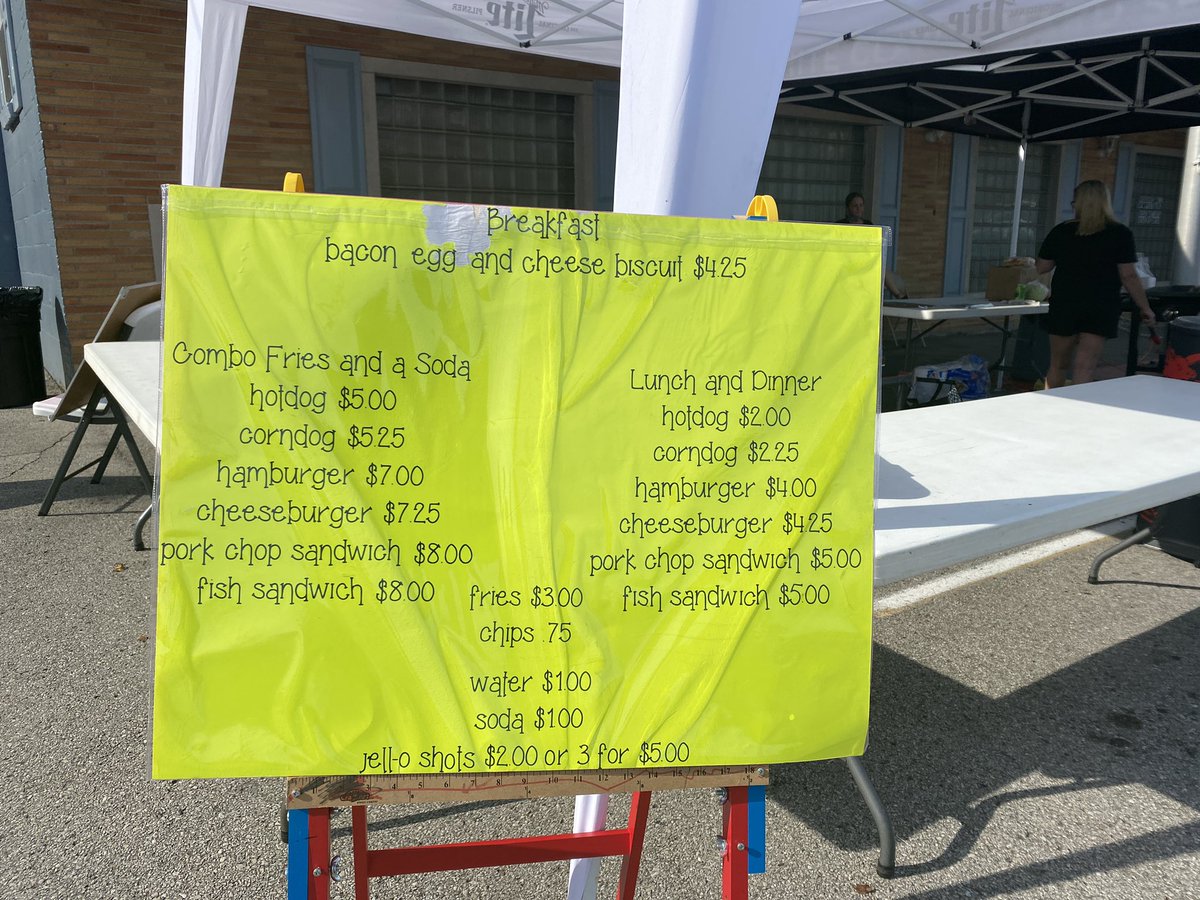 PILSNER
lite
lite
Breakfast
bacon egg and cheese biscuit $4.25
Combo Fries and a Soda
hotdog $5.00
corndog $5.25
hamburger $7.00
cheeseburger $7.25
pork chop sandwich $8.00
fish sandwich $8.00
Lunch and Dinner
hotdog $2.00
corndog $2.25
hamburger $4.00
cheeseburger $4.25
pork chop sandwich $5.00
fish sandwich $5.00
fries $3.00
chips .75
water $1.00
soda $1.00
jell-o shots $2.00 or 3 for $5.00